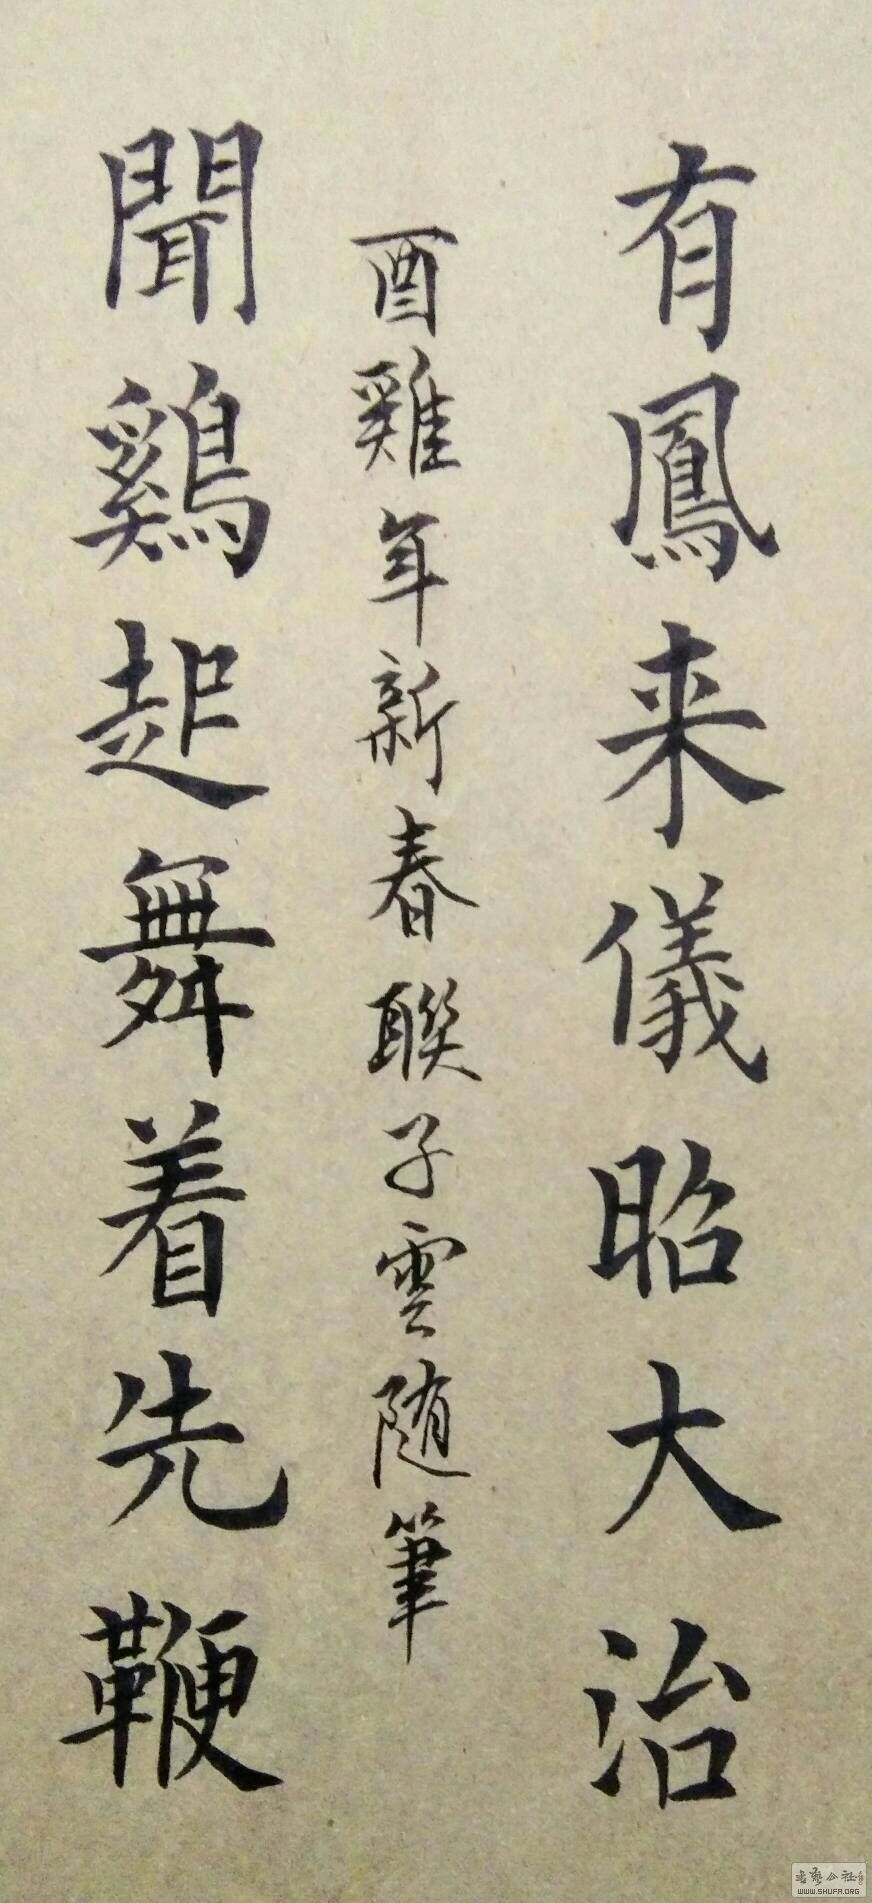 有鳳来儀昭大治
酉雞年新春聯子雲随筆
聞鷄起舞着先鞭
書藝公社
WWW.SHUFA.ORG